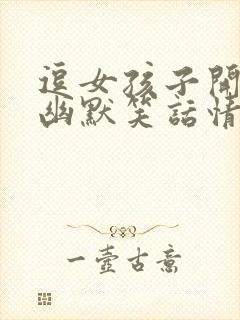 逗女孩子開
幽默笑話情
一壺古意